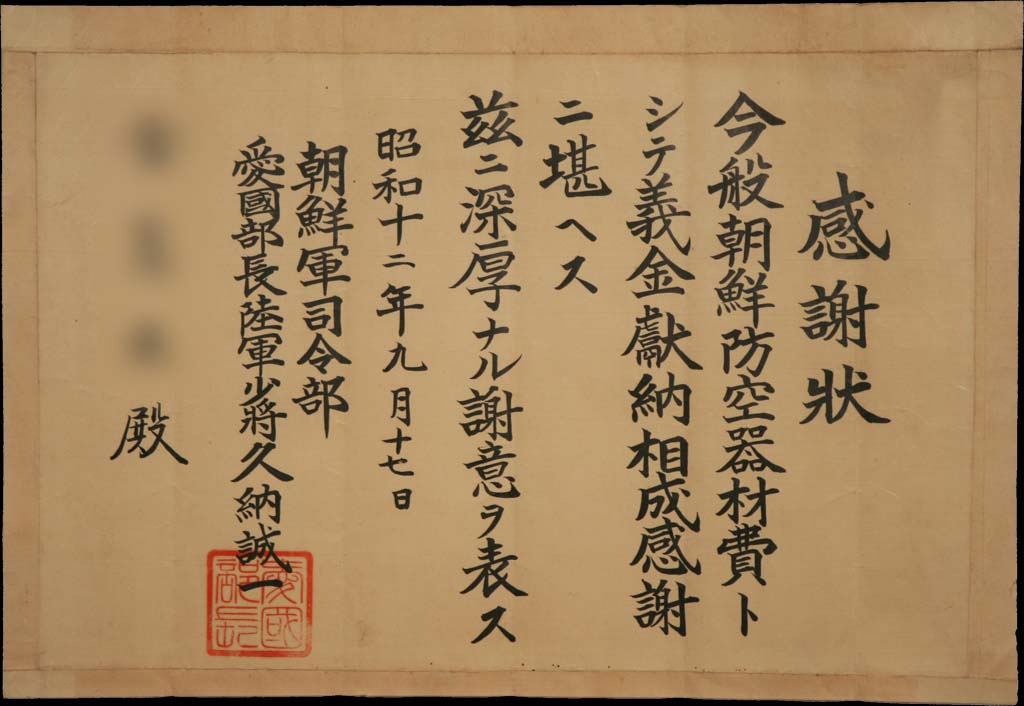 感謝狀
今般朝鮮防空器材費ト
シテ義金獻納相成感謝
ニ堪ヘス
茲ニ深厚ナル謝意ヲ表ス
昭和十二年九月十七日
朝鮮軍司令部
愛國部長陸軍少將久納誠一
愛國
部長
殿